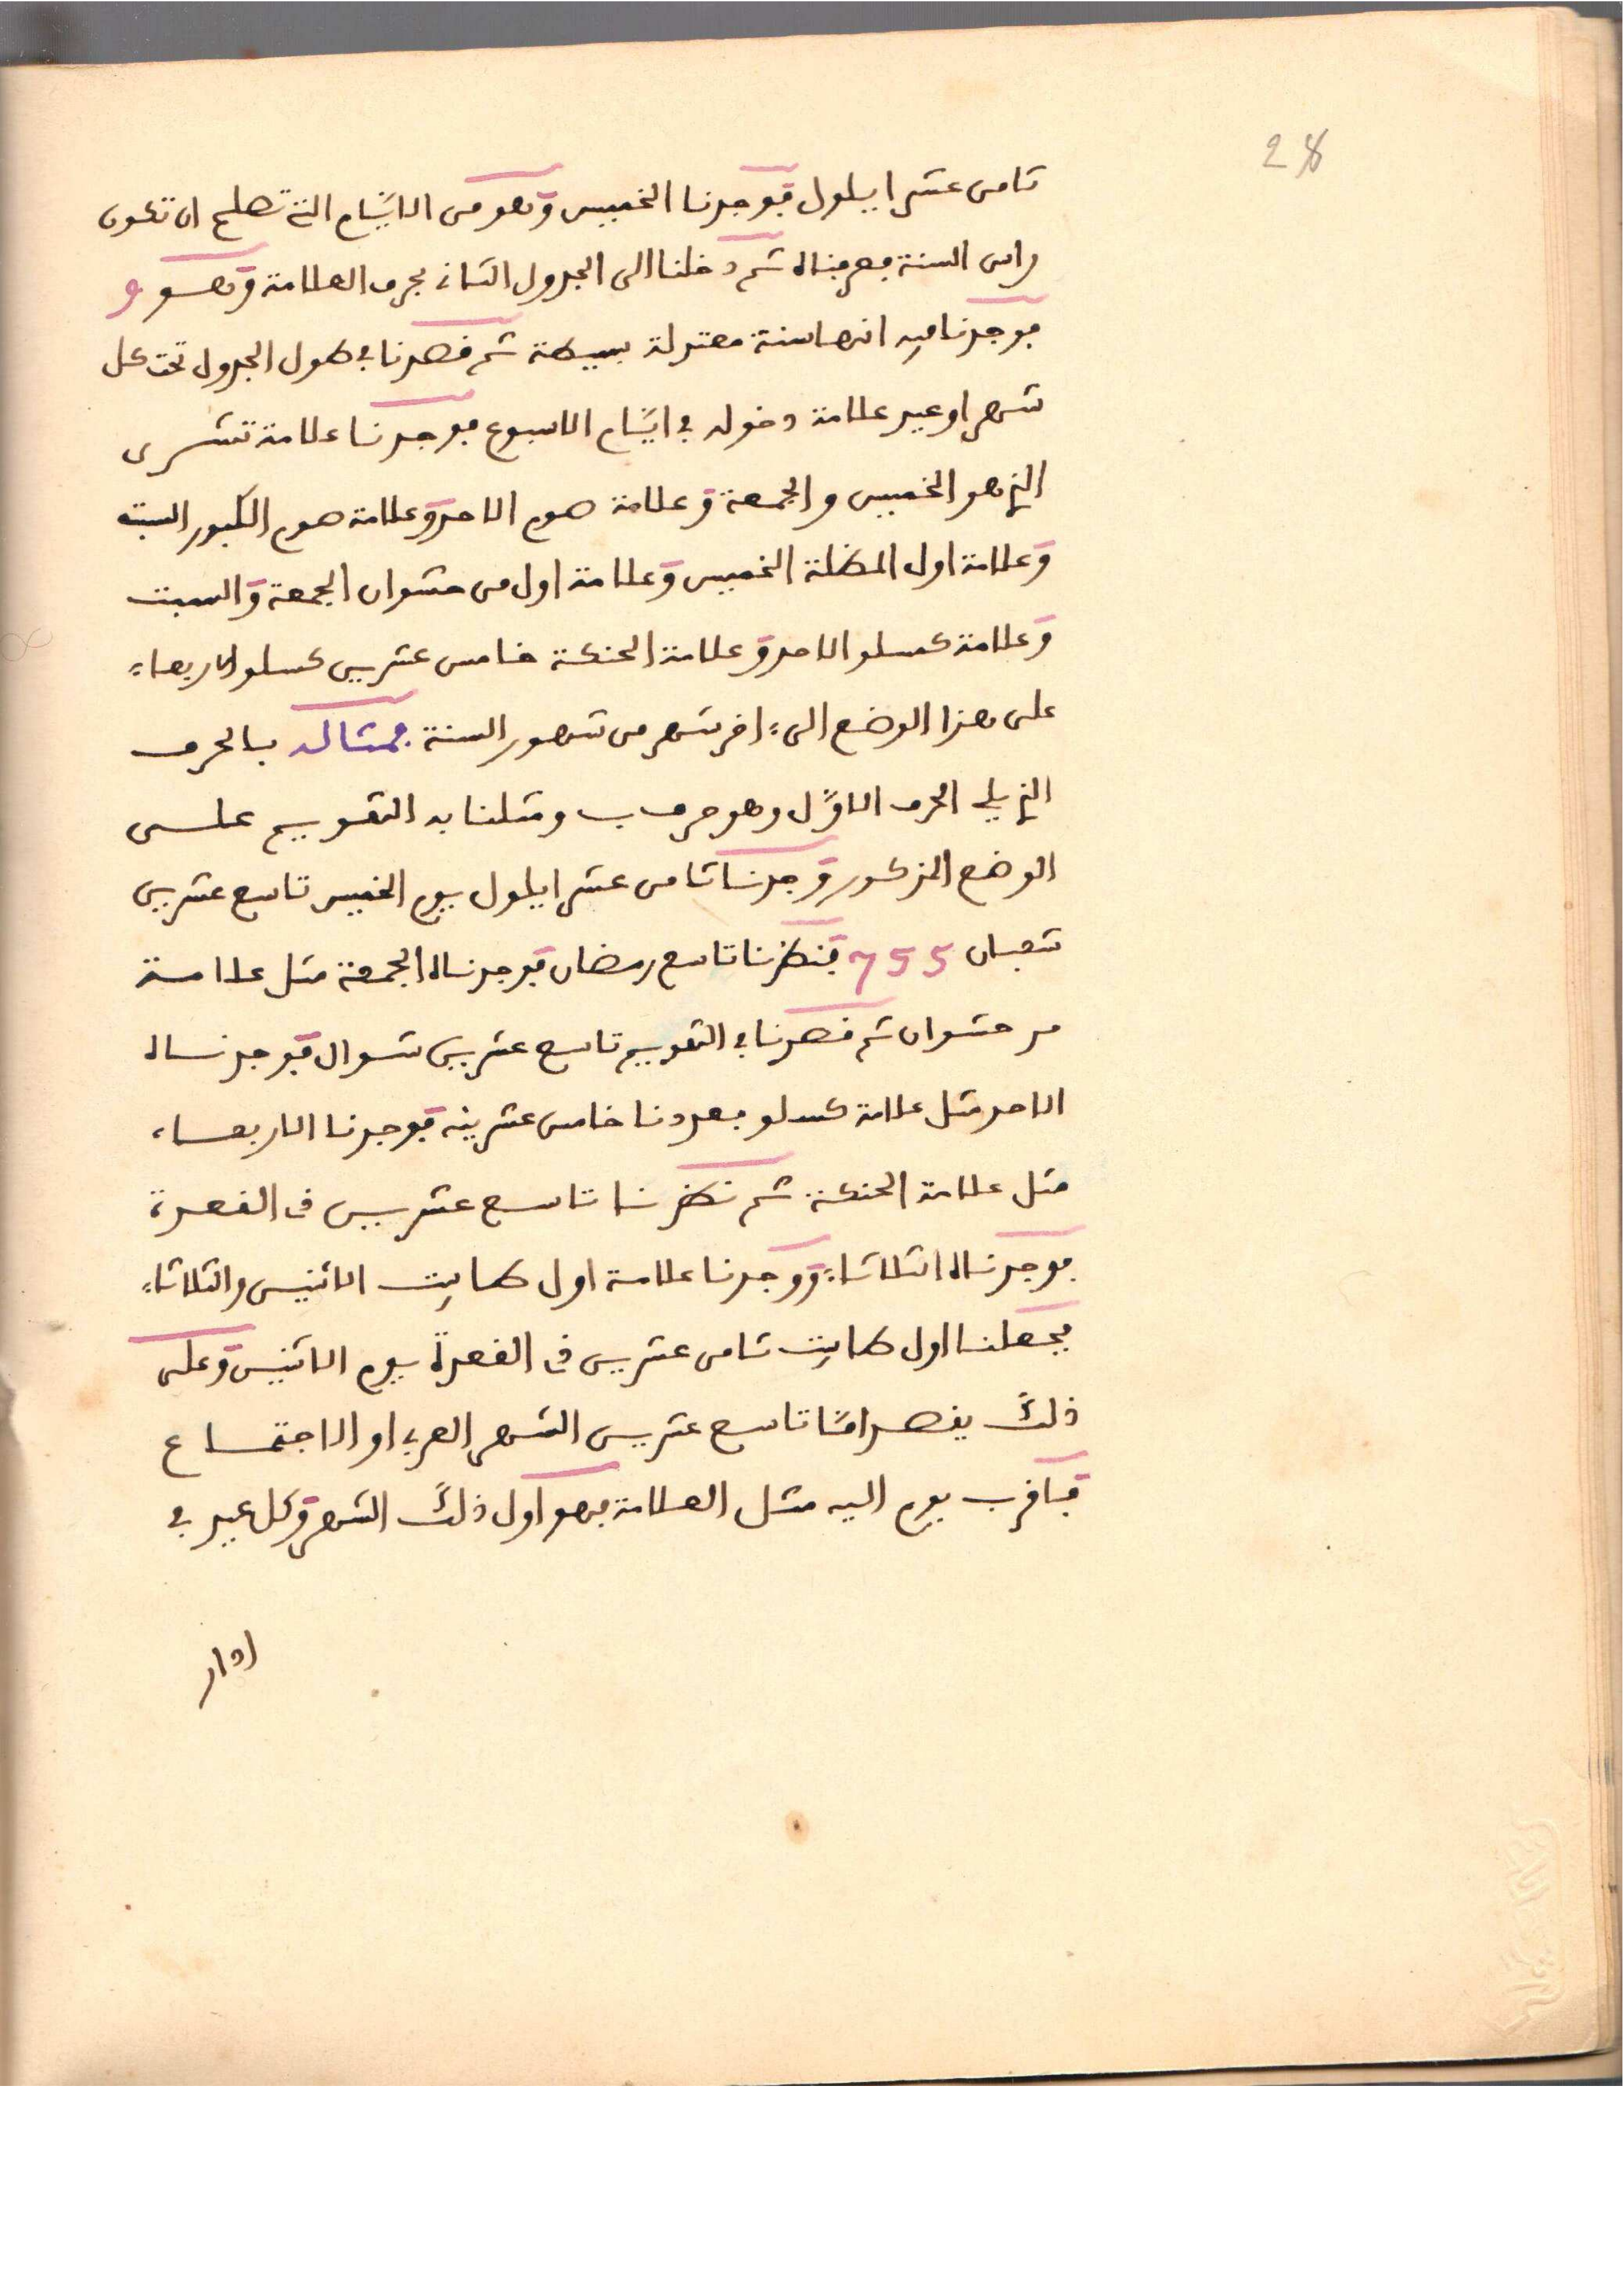 28
ثامن عشر ايلول فوجدنا الخميس وهو من الايام التي تصلح ان تكون
راس السنة فعرفناه ثم دخلنا الى الجدول الثاني بحرف العلامة وهو و
فوجدنا فيه انها سنة معتدلة بسيطة ثم قصدنا في طول الجدول تحت كل
شهر او عيد علامة دخوله في ايام الاسبوع فوجدنا علامة تشرى
الذي هو الخميس والجمعة وعلامة صوم الاحد وعلامة صوم الكبور السبت
وعلامة اول المظلة الخميس وعلامة اول من حشوان الجمعة والسبت
وعلامة كسلو الاحد وعلامة الحنكة خامس عشرين كسلو الاربعاء
على هذا الوضع الى ءاخر شهر من شهور السنة فمثاله بالحرف
الذي يلي الحرف الاول وهو حرف ب ومثلنا به التقويم على
الوضع المذكور وجدنا ثامن عشر ايلول يوم الخميس تاسع عشرين
شعبان 755 فنظرنا تاسع رمضان فوجدناه الجمعة مثل علامة
مرحشوان ثم قصدنا في التقويم تاسع عشرين شوال فوجدناه
الاحد مثل علامة كسلو فعددنا خامس عشرينه فوجدنا الاربعاء
مثل علامة الحنكة ثم نظرنا تاسع عشرين ذى القعدة
فوجدناه الثلاثاء ووجدنا علامة اول طابت الاثنين والثلاثاء
فجعلنا اول طابت ثامن عشرين ذى القعدة يوم الاثنين وعلى
ذلك يقصد امّا تاسع عشرين الشهر العربي او الاجتماع
فباقرب يوم اليه مثل العلامة فهو اول ذلك الشهر وكل عيد في
اوار